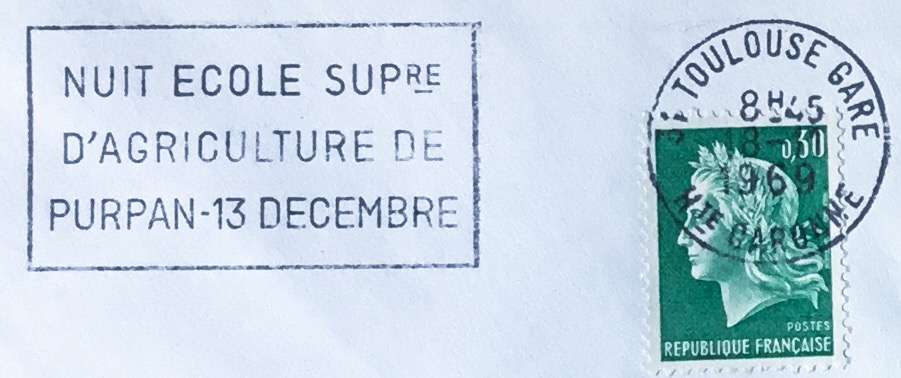 NUIT ECOLE SUPRE
D'AGRICULTURE DE
PURPAN-13 DECEMBRE
TOULOUSE GARE
8H45
1969
HTE GARONNE
0,30
POSTES
REPUBLIQUE FRANÇAISE